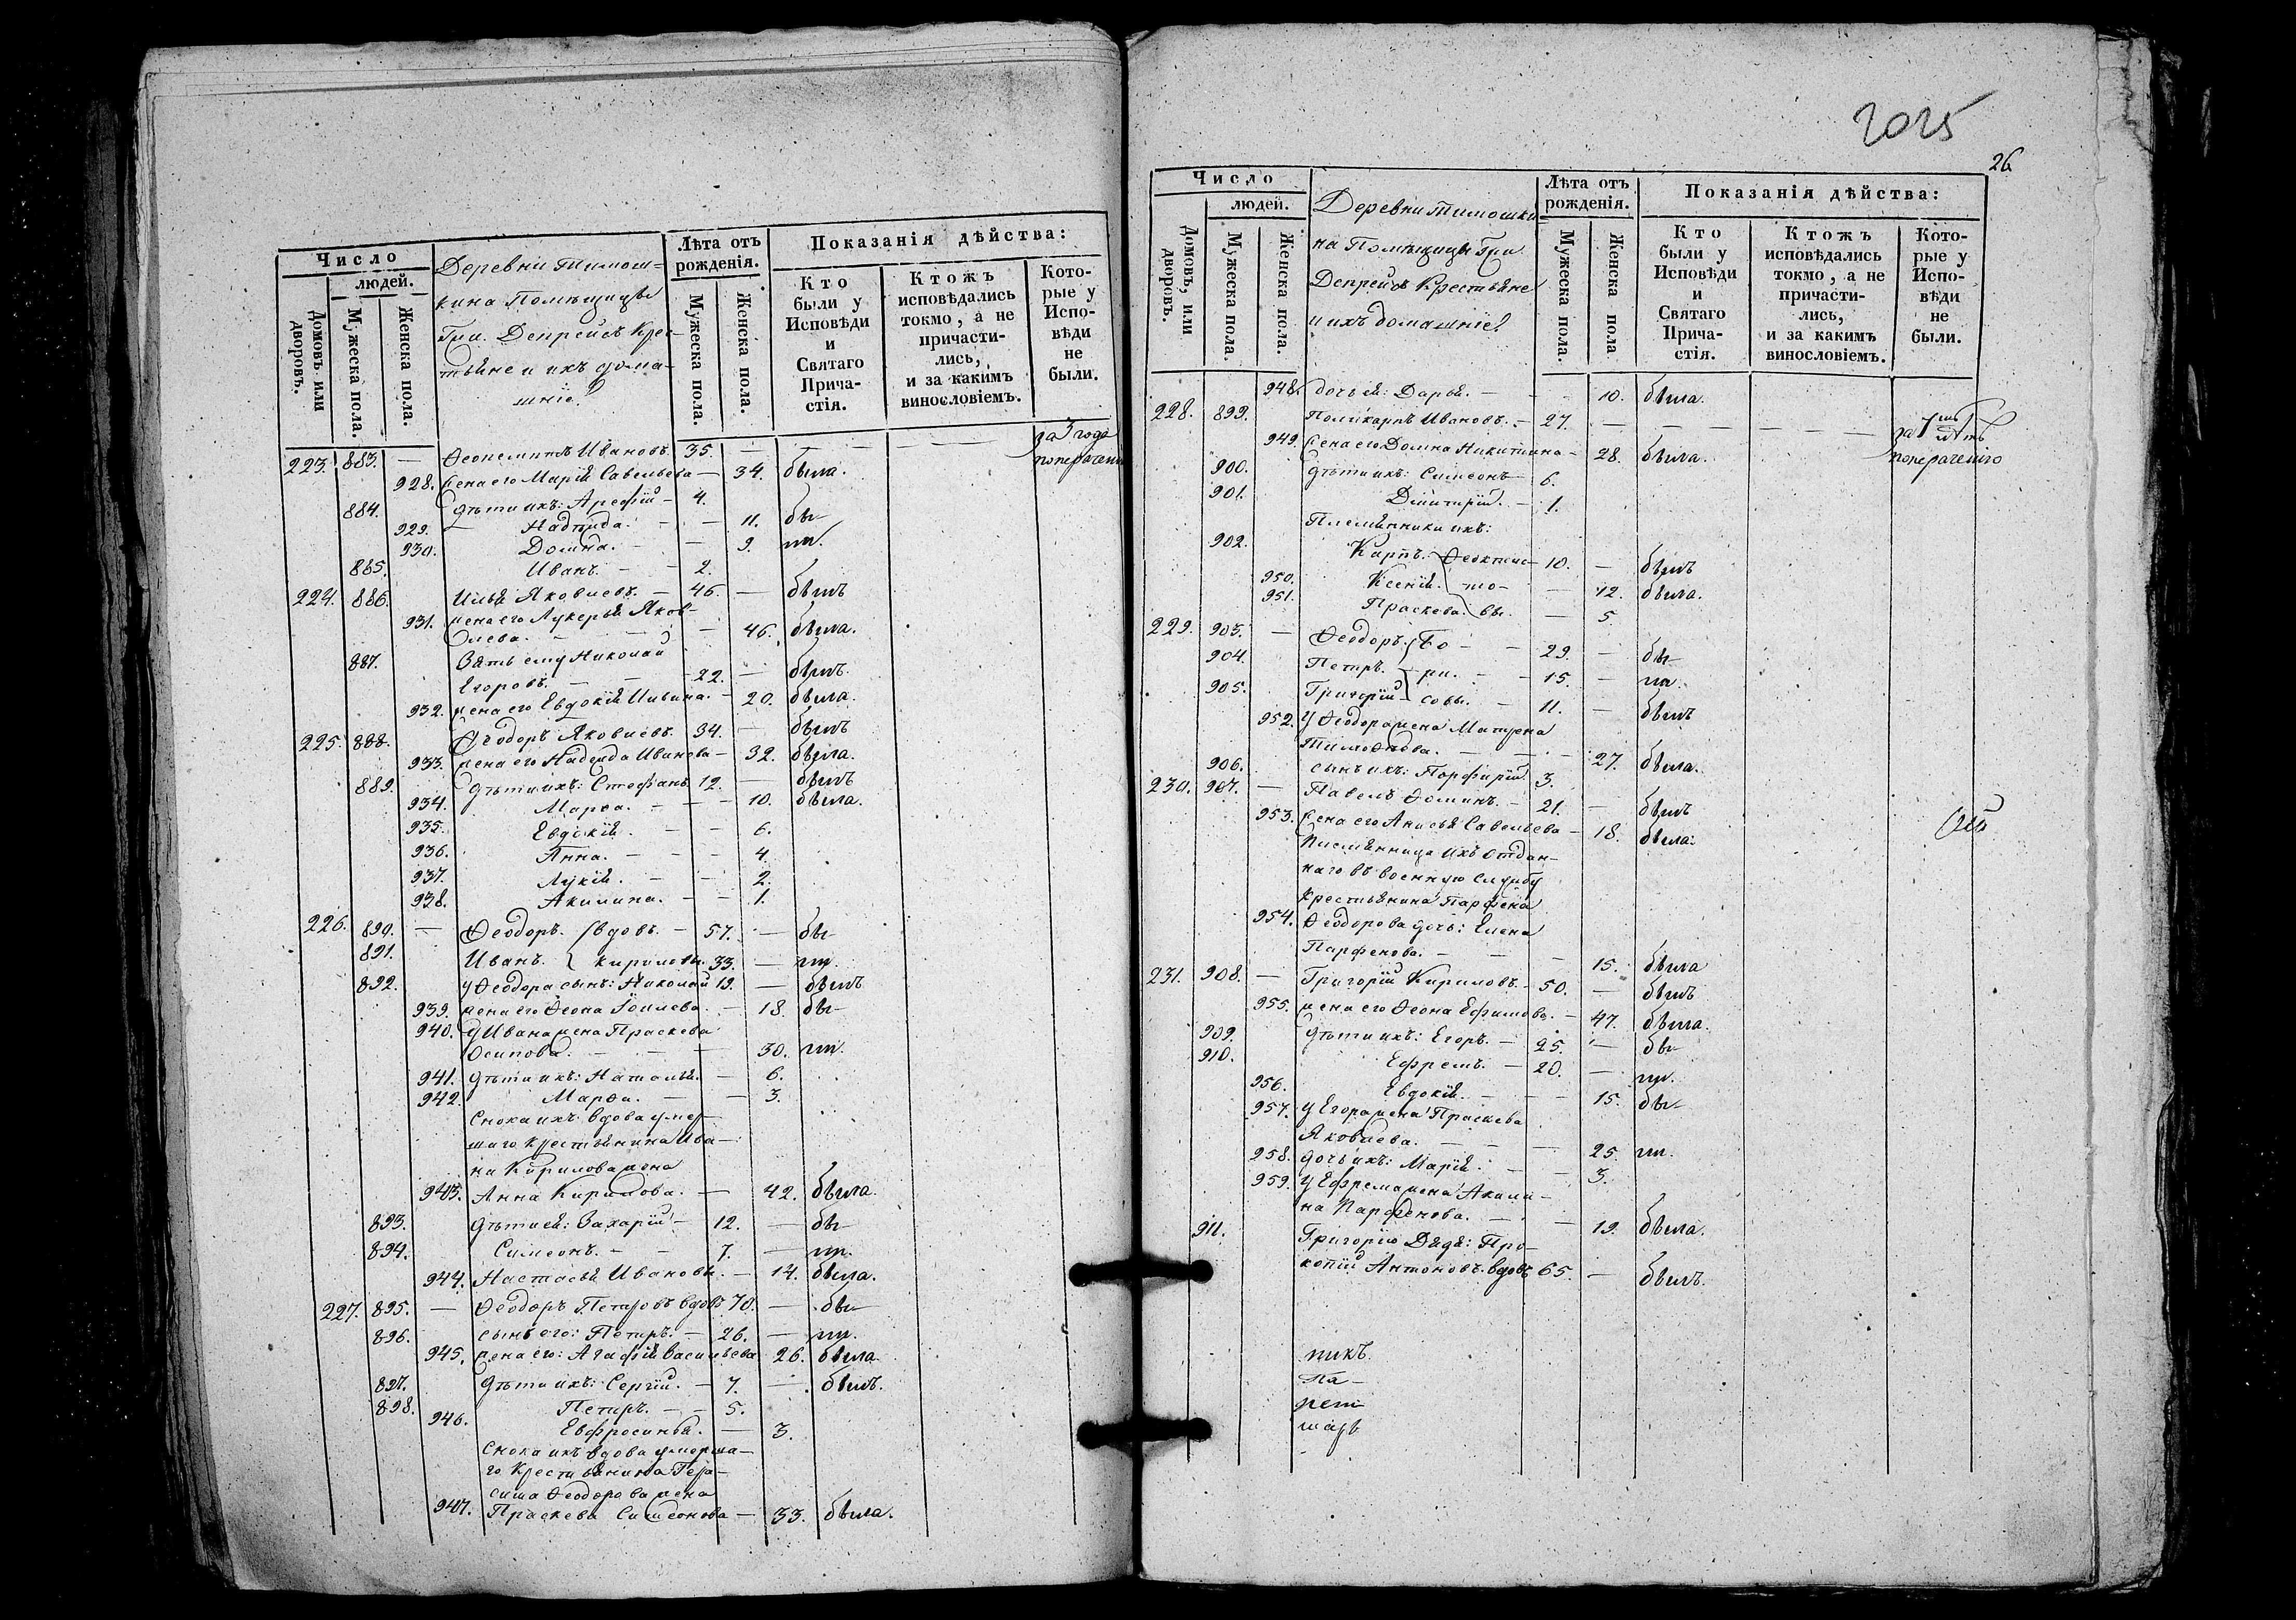 Число
людей.
Домовъ или дворовъ.
Мужеска пола.
Женска пола.
Деревни Тимош-
кина Помѣщицы
Гпи. Депрейсъ Крес-
тьяне и ихъ дома-
шніе.
Лѣта отъ рожденія.
Мужеска пола.
Женска пола.
Показанія дѣйства:
Кто были у Исповѣди и Святаго Причастія.
Ктожъ исповѣдались токмо, а не причасти-лись, и за какимъ винословіемъ.
Кото-рые у Испо-вѣди не были.
223. 883. — Ивановъ. 35. — — — за 3 года
928. жена его Марія Савельева — 34. была. понераченію
884. дѣти ихъ: Арефій — 4.
929. Надежда. — — 11. бы-
930. Домна. — — 9. ли.
885. Иванъ. — — 2.
224. 886. Илья Яковлевъ. — 46. — былъ
931. жена его Лукерья Яков-
лева. — — — 46. была.
887. Зять ему Николай
Егоровъ. — — 22. — былъ.
932. жена его Евдокія Ильина. — 20. была.
225. 888. Ѳеодоръ Яковлевъ. 34. — былъ
933. жена его Надежда Иванова — 32. была.
889. дѣти ихъ: Стефанъ. 12. — былъ
934. Марѳа. — — 10. была.
935. Евдокія. — — 6.
936. Анна. — — — 4.
937. Лукія. — — 2.
938. Акилина. — — 1.
226. 890. — Ѳеодоръ. вдовъ. — 57. — бы-
891. Иванъ. Кириловы. 33. — ли.
892. у Ѳеодора сынъ: Николай 19. — былъ
939. жена его Ѳеона — 18. бы-
940. у Ивана жена Праскева
Осипова. — — — 30. ли.
941. дѣти ихъ: Наталья. — 6.
942. Марѳа. — — 3.
Сноха ихъ вдова умер-
шаго крестьянина Ива-
на Кирилова жена
943. Анна Кирилова. — 42. была.
893. дѣти ей: Захарій — 12. — бы-
894. Симеонъ. — — 7. — ли.
944. Настасья Иванова. — 14. была.
227. 895. — Ѳеодоръ Петровъ вдовъ 70. — бы-
896. сынъ его: Петръ. — 26. — ли.
945. жена его: Агафія Васильева 26. была
897. дѣти ихъ: Сергій. — 7. — былъ.
898. Петръ. — — 5.
946. Евфросинья. — 3.
Сноха ихъ вдова умерша-
го Крестьянина Гера-
сима Ѳеодорова жена
947. Праскева Симеонова — 33. была.
2025
26
Число
людей.
Домовъ, или дворовъ.
Мужеска пола.
Женска пола.
Деревни Тимошки-
на Помѣщицы Гпи
Депрейсъ Крестьяне
и ихъ домашніе.
Лѣта отъ рожденія.
Мужеска пола.
Женска пола
Показанія дѣйства:
Кто были у Исповѣди и Святаго Прича-стія.
Ктожъ исповѣдались токмо, а не причасти-лись, и за какимъ винословіемъ.
Кото-рые у Испо-вѣди не были.
948. дочь ей: Дарья. — — 10. была.
228. 899. Поликарпъ Ивановъ. — 27. — — — — за 7 лѣтъ
949. жена его Домна Никитина — 28. была. понераченію
900. дѣти ихъ: Симеонъ — 6.
901. Димитрій. — 1.
Племянники ихъ:
902. Карпъ. Ѳеоктис- 10. — былъ
950. Ксенія. то- — 12. была.
951. Праскева. вы. — 5.
229. 903. — Ѳеодоръ. Бо- — 29. — бы-
904. Петръ. ри- — — 15. — ли.
905. Григорій совы. — 11. — былъ
952. у Ѳеодора жена Матрена
Тимоѳеева. — — — 27. была.
906. сынъ ихъ: Порфирій 3.
230. 907. — Павелъ Ѳоминъ. — 21. — былъ
953. жена его Анисья Савельева — 18. была.
Племянница ихъ отдан-
наго въ военную службу
крестьянина Парфена
954. Ѳеодорова дочь: Елена
Парфенова. — — — 15. была
231. 908. — Григорій Кириловъ. 50. — былъ
955. жена его Ѳеона Ефимова. — 47. была.
909. дѣти ихъ: Егоръ. — 25. — бы-
910. Ефремъ. — 20. — ли.
956. Евдокія. — — 15. бы-
957. у Егора жена Праскева
Яковлева. — — — 25. ли.
958. дочь ихъ: Марія. — — 3.
959. у Ефрема жена Акили-
на Парфенова. — — 19. была.
911. Григорію Дядя: Про-
копій Антоновъ. вдовъ 65. — былъ.
никъ.
На-